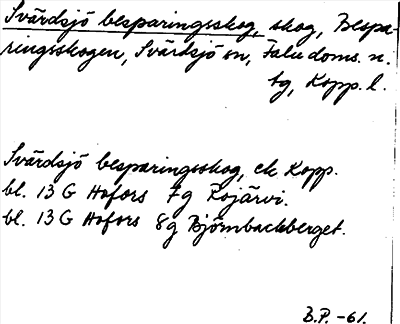 Svärdsjö besparingsskog, skog, Bespa-
ringsskogen, Svärdsjö sn, Falu doms. n.
tg, Kopp. l.
Svärdsjö besparingsskog, ek Kopp.
bl. 13 G Hofors 7g Rojärvi.
bl. 13 G Hofors 8g Björnbackberget.
B.P. -61.